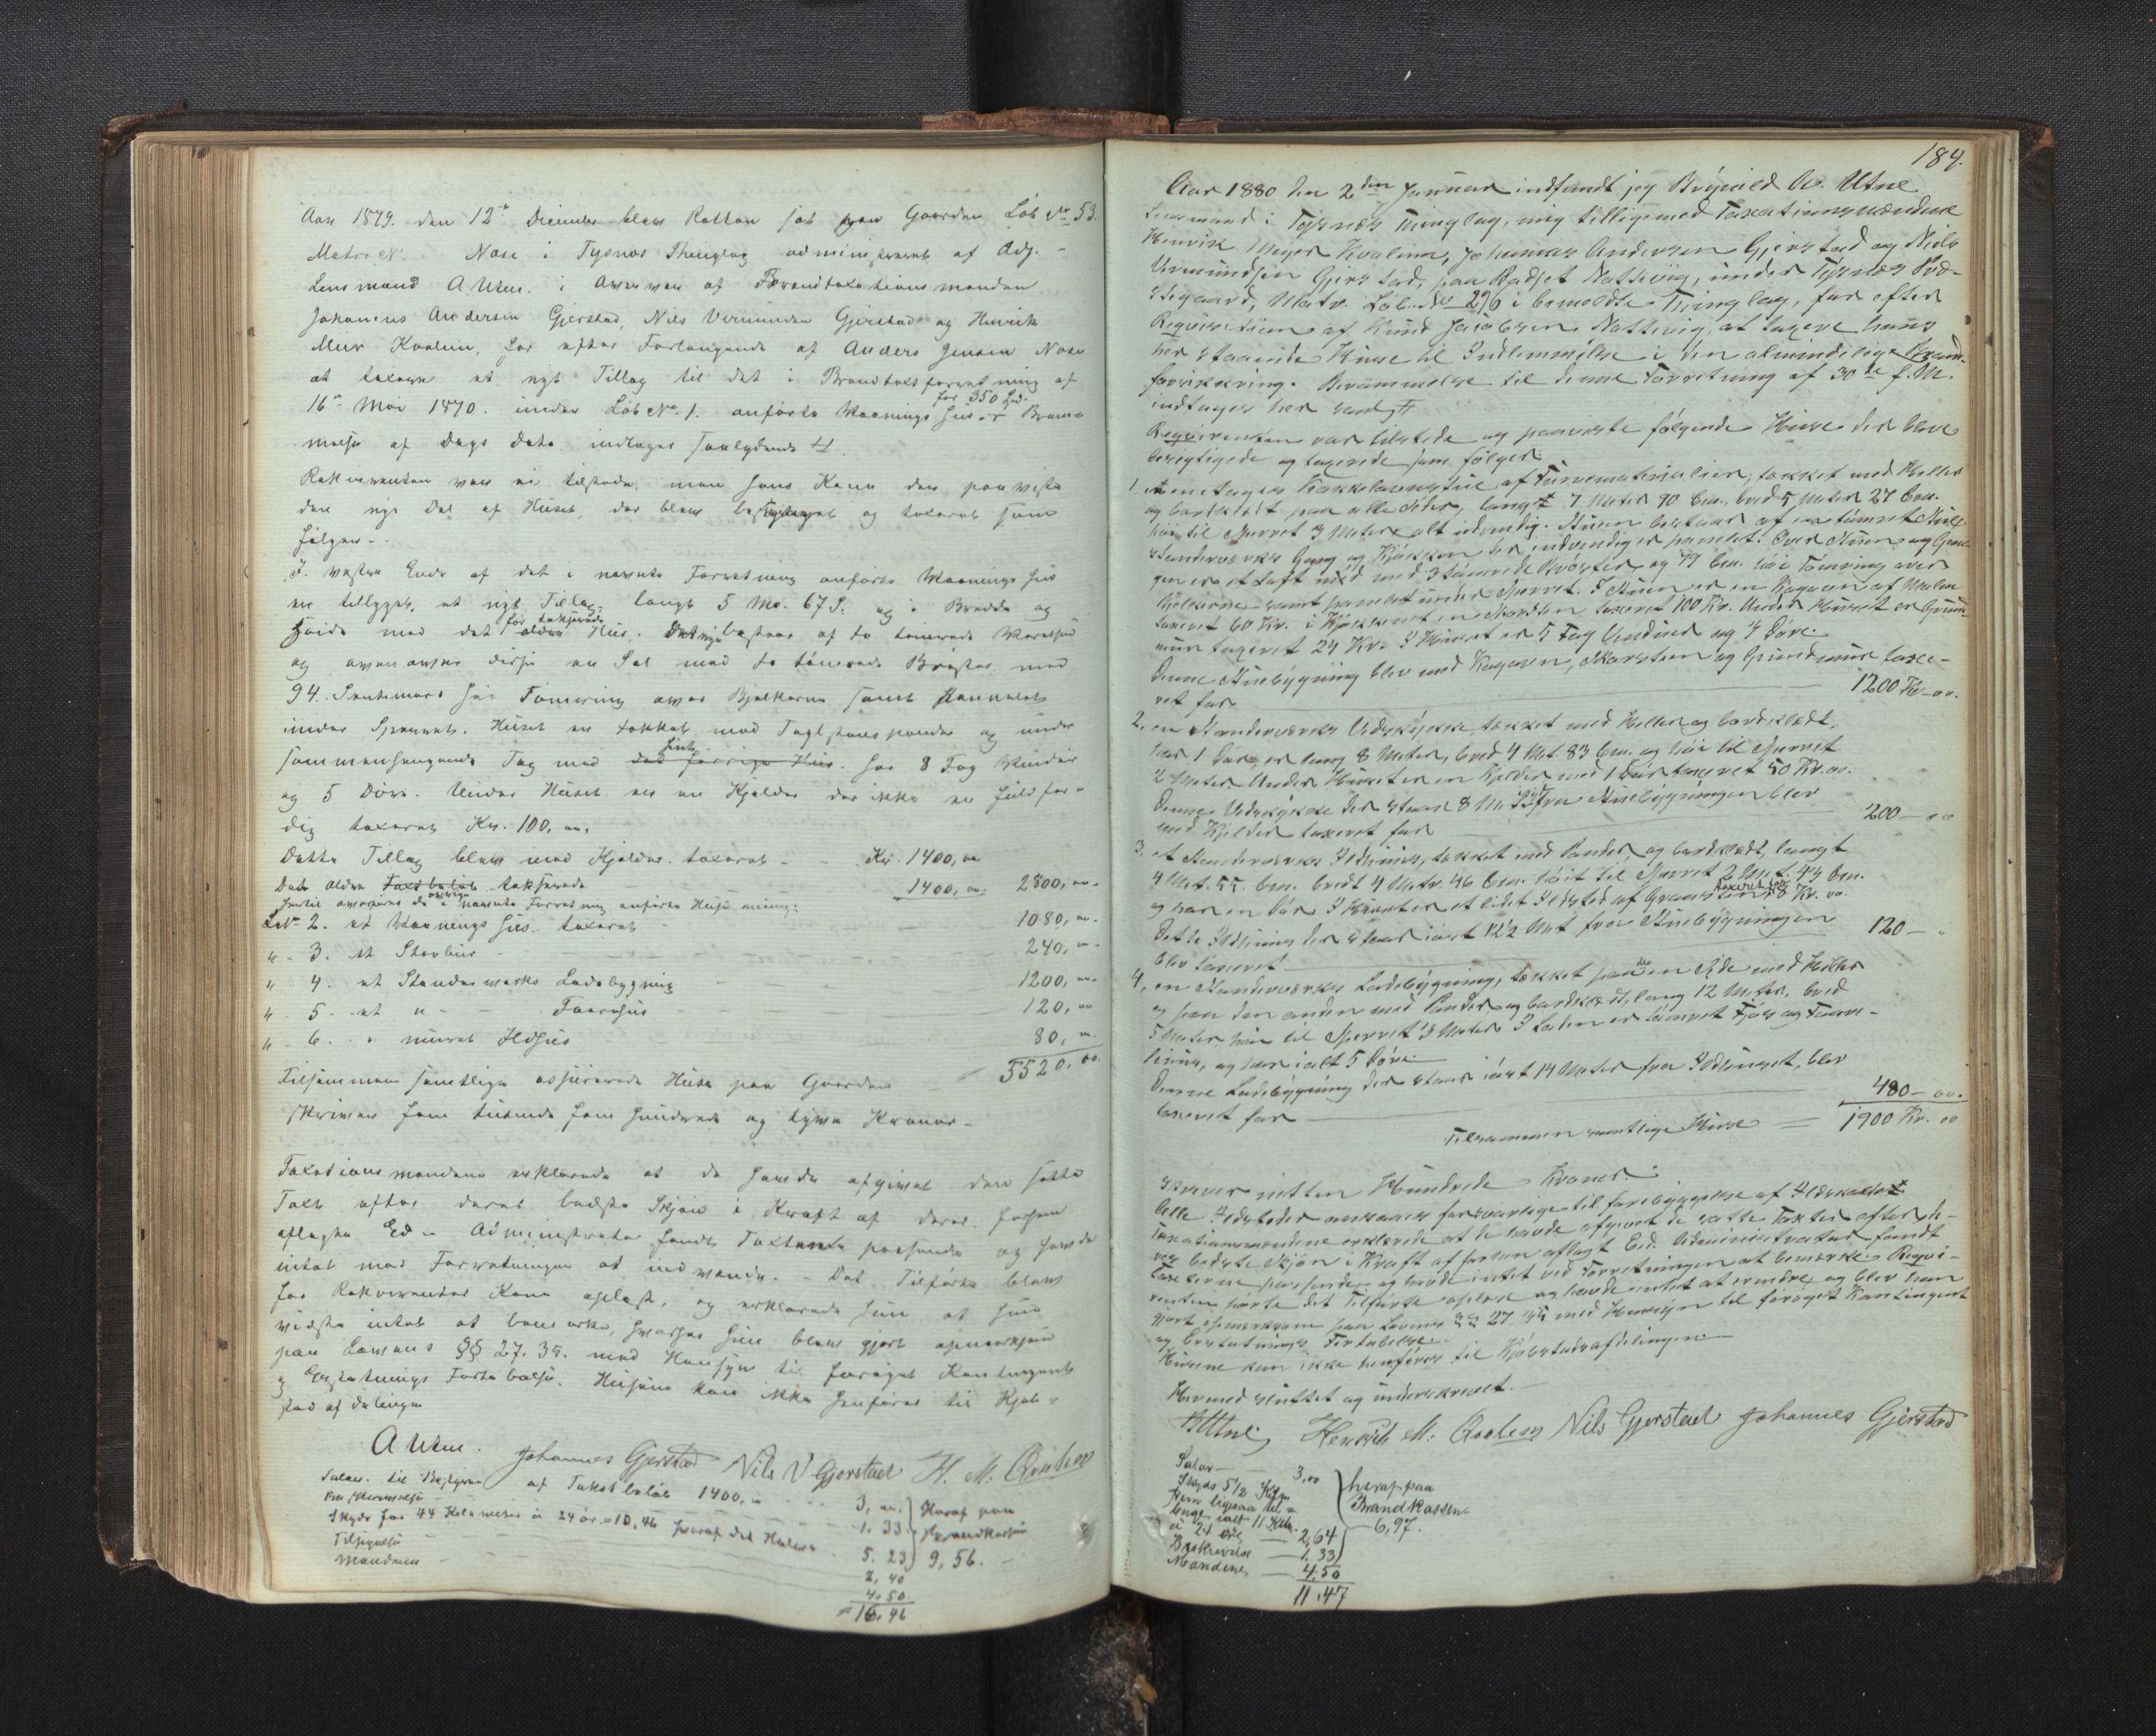 Aar 1879. den 12te December blev Retten sat paa Gaarden Løb No 53.
Matr. No Nese i Tysnæs Thinglag administreret af Adj.
Lensmand A Utne. i Overvær af Brandtaxationsmændene
Johannes Andersen Gjerstad, Nils Vermundsen Gjerstad og Henrik
Meier Koalien, for efter Forlangende af Anders Jensen Nese
at taxere et nyt Tillæg til det i Brandtaxtforretning af
16de Mai 1870. under Løb No. 1. anførte Vaaningshus for 350 Spd. Beram-
melse af Dags Dato indtages saalydende #
Rekvirenten var ei tilstede, men hans Kone der paaviste
den nye Del af Huset, der blev besigtiget og taxeret som
følger.
I. vestre Ende af det i nævnte Forretning anførte Vaaningshus
er tilbygget, et nyt Tillæg, langt 5 Me. 67 S. og i Bredde og
Høide med det før takserede Hus. Det nye bestaar af to tømrede Værelser
og ovenover disse en Sal med to tømrede Brøster med
94. Sentimeters høi Tømring over Bjelkerne samt Pannelet
under Sperret. Huset er tækket med Taglstenspander og under
sammenhængende Tag med det forrige Hus. har 8 Fag Vinduer
og 5 Døre. Under Huset er en Kjelder der ikke er fuldfær-
dig taxeret Kr. 100, oo.
Dette Tillæg blev med Kjelder taxeret - - Kr. 1400, oo
Det ældre takserede 1400, oo. 2800, oo.
hertil overføres de øvrige i nævnte Forretning anførte Huse nemlig:
Løb No 2. et Vaanings hus taxeret - 1080, oo.
" - 3. et Stavbur - 240, oo
" - 4. et Standerværks Ladebygning 1200, oo.
" - 5. et " - Faarehus 120, oo
" - 6. " muret Ildhus 80, oo.
Tilsammen samtlige assurerede Huse paa Gaarden = 5520, oo.
skriver fem tusende fem hundrede og tyve Kroner.
Taxationsmændene erklærede at de havde afgivet den satte
Taxt efter deres bedste Skjøn i Kraft af deres forhen
aflagte Ed. Administrator fandt Taxterne passende og havde
intet mod Forretningen at indvende. Det Tilførte blev
for Rekvirentens Kone oplæst, og erklærede hun at hun
vidste intet at bemærke, hvorhos hun blev gjort opmærksom
paa Lovens §§ 27. 35. med Hensyn til forøget Kontingent
og Erstatnings Fortabelse. Husene kan ikke henføres til Kjøb-
stadafdelingen
A Utne. Johannes Gjerstad Nils V Gjerstad H. M. Qvalien
Salær til Bestyreren af Takstbeløb 1400, oo 3, oo. Heraf paa
1. 33. Brandkassen
Skyds for 44 Kilometer à 24 ør. = 10,46 hvoraf det Halve 5. 23 9, 56.
Tilsigelse 2, 40
Mændene 4. 50
= 16, 46
184.
Aar 1880 den 2den Januar indfandt jeg Brynild A. Utne
Lensmand i Tysnæs Thinglag, mig tilligemed Taxationsmændene
Henrik Meyer Koalien, Johannes Andersen Gjerstad og Niels
Vermundsen Gjerstad, paa Pladset Nattevig, under Tysnæs Præ-
stegaard, Matr. Løb-No 296 i bemeldte Thinglag, for efter
Reqvisition af Knud Jacobsen Nattevig, at taxere hans
her staaende Huse til Indlemmelse i den almindelige Brand-
forsikkring. Berammelse til denne Forretning af 30te f. M.
indtages her
Reqvirenten var tilstede og paaviste følgende Huse der blev
besigtigede og taxerede som følger:
1. en etages Kakkelovnstue af Furumaterialier, tækket med Heller
og bordklædt paa alle Sider, langt 7 Meter 90 Cm. bred 5 Meter 27 Cm.
høi til Sperret 3 Meter alt indvendig. Stuen bestaar af en tømret Stue
standerværks Gang og Kjøkken der indvendig er panelet. Over Stuen og Gan-
gen er et Loft med med 3 tømrede Brøster og 79 Cm. høi Tømring over
Bjelkerne samt panelet under Sperret. I Stuen er en Kagovn af Malm
taxeret 60 Kr. i Kjøkkenet en Skorsten taxeret 100 Kr. Under Huset er Grund-
mur taxeret 24 Kr. I Huset er 5 Fag Vinduer og 4 Døre.
Denne Stuebygning blev med Kagovn, Skorsten og Grundmur taxe-
ret for 1200 Kr oo.
2, en Standerværks Vedskykke, tækket med Heller og bordklædt,
har 1 Dør, er lang 8 Meter, bred 4 Met. 83 Cm. og høi til Sperret
2 Meter. Under Huset er en Kjelder med 1 Dør taxeret 50 Kr. oo.
Denne Vedskykke der staar 8 M. fra Stuebygningen blev
med Kjelder taxeret for 200 - oo
3, et Standerværks Ildhuus, tækket med Pander, og bordklædt, langt
4 Met. 55 Cm. bredt 4 Metr. 46 Cm. høit til Sperret 2 Met. 43 Cm.
og har en Dør. I Huset er et lidet Ildsted af Graasten taxeret for 8 Kr. oo.
Dette Ildhuus der staar iøst 12½ Met fra Stuebygningen
blev taxeret 120 - "
4, en Standerværks Ladebygning, tækket paa den ene Side med Heller
og paa den anden med Pander og bordklædt, lang 12 Meter, bred
5 Meter høi til Sperret 3 Meter. I Laden er tømret Fjøs og Faare-
huus, og har ialt 5 Døre.
Denne Ladebygning der staar iøst 14 Meter fra Ildhuset, blev
taxeret for 480 - oo.
Tilsammen samtlige Huse = 1900 Kr. oo
skriver nitten Hundrede Kroner.
Alle Ildsteder ansaaes forsvarlige til forebyggelse af Ildsvaade.
Taxationsmændene erklærede at de havde afgivet de satte Taxter efter de-
res bedste Skjøn i Kraft af forhen aflagt Eed. Administrator fandt
Taxterne passende og havde intet ved Forretningen at bemærke. Reqvi-
renten hørte det Tilførte oplæse og havde intet at erindre, og blev han
gjort opmærksom paa Lovens §§ 27, 35 med Hensyn til forøget Kontingent
og Erstatnings Fortabelse.
Husene kan ikke henføres til Kjøbstadsafdelingen.
Hermed sluttet og underskrevet.
BUtne, Henrik M. Qvalien Nils Gjerstad Johannes Gjerstad
Salær 3,00 heraf paa
Skyds 5½ Klm Brandkassen
frem ligesaa til- 6,97.
bage ialt 11 Klm.
à 24 øre 2,64
Beskrivelse 1.33
Mændene 4.50
11.47